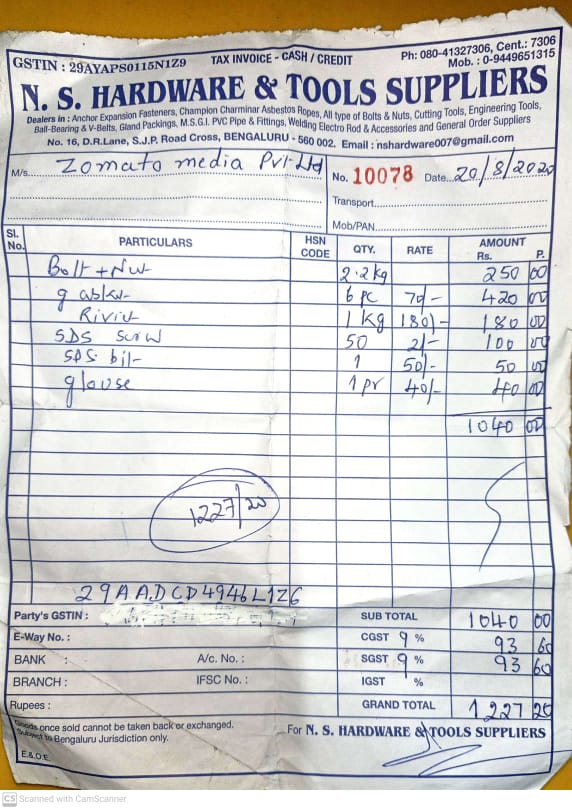 GSTIN : 29AYAPS0115N1Z9 TAX INVOICE - CASH / CREDIT Ph: 080-41327306, Cent.: 7306
Mob. : 0-9449651315
N. S. HARDWARE & TOOLS SUPPLIERS
Dealers in : Anchor Expansion Fasteners, Champion Charminar Asbestos Ropes, All type of Bolts & Nuts, Cutting Tools, Engineering Tools,
Ball-Bearing & V-Belts, Gland Packings, M.S.G.I. PVC Pipe & Fittings, Welding Electro Rod & Accessories and General Order Suppliers
No. 16, D.R.Lane, S.J.P. Road Cross, BENGALURU - 560 002. Email : nshardware007@gmail.com
M/s. Zomato media Pvt Ltd No. 10078 Date 20/8/2020
Transport
Mob/PAN
Sl. No. PARTICULARS HSN CODE QTY. RATE AMOUNT Rs. P.
Bolt + Nut 2.2kg 250 00
6 pc 70/- 420 00
Rivit 1 kg 180/- 180 00
SDS Screw 50 2/- 100 00
SDS bit 1 50/- 50 00
glouse 1 pr 40/- 40 00
1040 00
1227/20
29AADCD4946L1Z6
Party's GSTIN : SUB TOTAL 1040 00
E-Way No. : CGST 9 % 93 60
BANK : A/c. No. : SGST 9 % 93 60
BRANCH : IFSC No. : IGST %
Rupees : GRAND TOTAL 1227 20
Goods once sold cannot be taken back or exchanged. For N. S. HARDWARE & TOOLS SUPPLIERS
Subject to Bengaluru Jurisdiction only.
E.& O.E.
CS Scanned with CamScanner